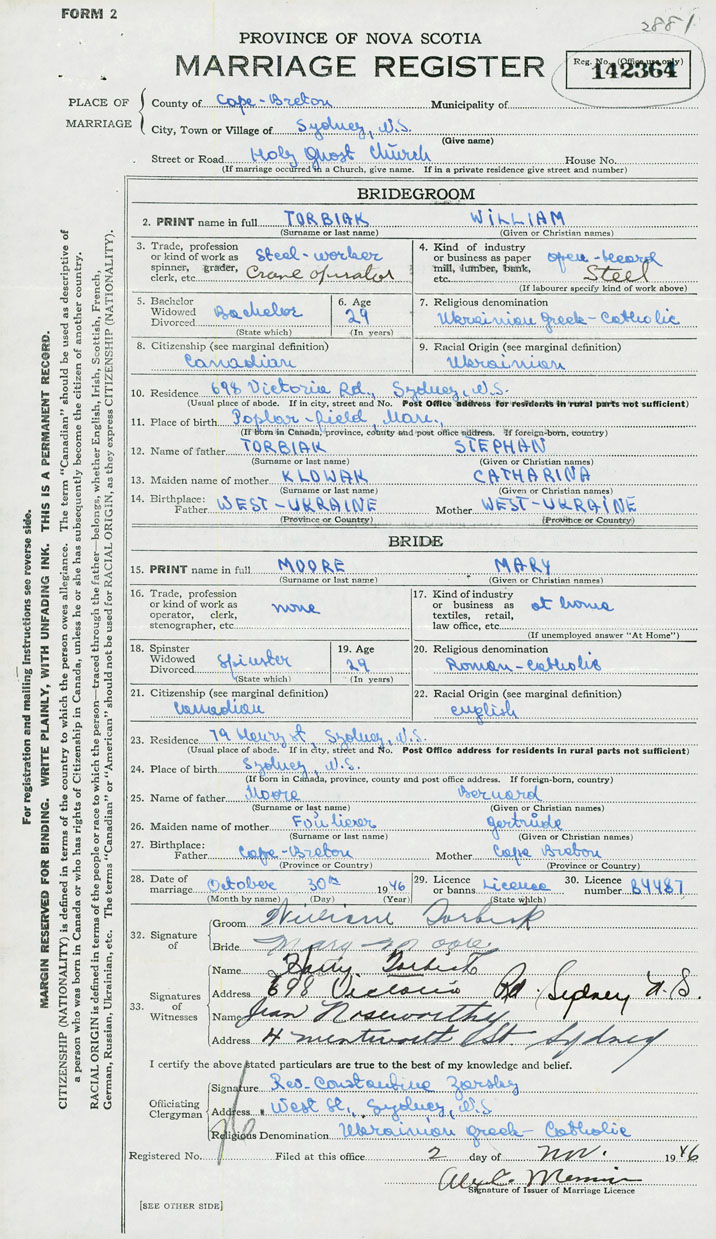 FORM 2
2881
PROVINCE OF NOVA SCOTIA
MARRIAGE REGISTER
Reg. No. (Office use only)
142364
PLACE OF MARRIAGE
County of Cape-Breton Municipality of
City, Town or Village of Sydney, N.S.
(Give name)
Street or Road Holy Ghost Church House No.
(If marriage occurred in a Church, give name. If in a private residence give street and number)
BRIDEGROOM
2. PRINT name in full TORBIAK WILLIAM
(Surname or last name) (Given or Christian names)
3. Trade, profession or kind of work as spinner, grader, clerk, etc. Steel-worker Crane operator
4. Kind of industry or business as paper mill, lumber, bank, etc. open-heard Steel
(If labourer specify kind of work above)
5. Bachelor Widowed Divorced Bachelor
(State which)
6. Age 29
(In years)
7. Religious denomination
Ukrainian greek-Catholic
8. Citizenship (see marginal definition)
Canadian
9. Racial Origin (see marginal definition)
Ukrainian
10. Residence 698 Victoria Rd., Sydney, N.S.
(Usual place of abode. If in city, street and No. Post Office address for residents in rural parts not sufficient)
11. Place of birth Poplar-field, Man.,
(If born in Canada, province, county and post office address. If foreign-born, country)
12. Name of father TORBIAK STEPHAN
(Surname or last name) (Given or Christian names)
13. Maiden name of mother KLOWAK CATHARINA
(Surname or last name) (Given or Christian names)
14. Birthplace: Father WEST-UKRAINE Mother WEST-UKRAINE
(Province or Country) (Province or Country)
BRIDE
15. PRINT name in full MOORE MARY
(Surname or last name) (Given or Christian names)
16. Trade, profession or kind of work as operator, clerk, stenographer, etc. none
17. Kind of industry or business as textiles, retail, law office, etc. at home
(If unemployed answer "At Home")
18. Spinster Widowed Divorced Spinster
(State which)
19. Age 29
(In years)
20. Religious denomination
Roman-Catholic
21. Citizenship (see marginal definition)
Canadian
22. Racial Origin (see marginal definition)
english
23. Residence 79 Henry st, Sydney, N.S.
(Usual place of abode. If in city, street and No. Post Office address for residents in rural parts not sufficient)
24. Place of birth Sydney, N.S.
(If born in Canada, province, county and post office address. If foreign-born, country)
25. Name of father Moore Bernard
(Surname or last name) (Given or Christian names)
26. Maiden name of mother gertrude
(Surname or last name) (Given or Christian names)
27. Birthplace: Father Cape-Breton Mother Cape Breton
(Province or Country) (Province or Country)
28. Date of marriage October 30th 1946
(Month by name) (Day) (Year)
29. Licence or banns Licence
(State which)
30. Licence number B4487
32. Signature of
Groom William Torbiak
Bride Mary Moore
33. Signatures of Witnesses
Name Harry Torbiak
Address 698 Victoria Rd, Sydney N.S.
Name Jean Noseworthy
Address 4 Wentworth St. Sydney
I certify the above stated particulars are true to the best of my knowledge and belief.
Officiating Clergyman
Signature Rev. Constantine
Address West St., Sydney, N.S
Religious Denomination Ukrainian greek-Catholic
Registered No. Filed at this office 2 day of Nov. 1946
Signature of Issuer of Marriage Licence
[SEE OTHER SIDE]
For registration and mailing instructions see reverse side.
MARGIN RESERVED FOR BINDING. WRITE PLAINLY, WITH UNFADING INK. THIS IS A PERMANENT RECORD.
CITIZENSHIP (NATIONALITY) is defined in terms of the country to which the person owes allegiance. The term "Canadian" should be used as descriptive of
a person who was born in Canada or who has rights of Citizenship in Canada, unless he or she has subsequently become the citizen of another country.
RACIAL ORIGIN is defined in terms of the people or race to which the person—traced through the father—belongs, whether English, Irish, Scottish, French,
German, Russian, Ukrainian, etc. The terms "Canadian" or "American" should not be used for RACIAL ORIGIN, as they express CITIZENSHIP (NATIONALITY).